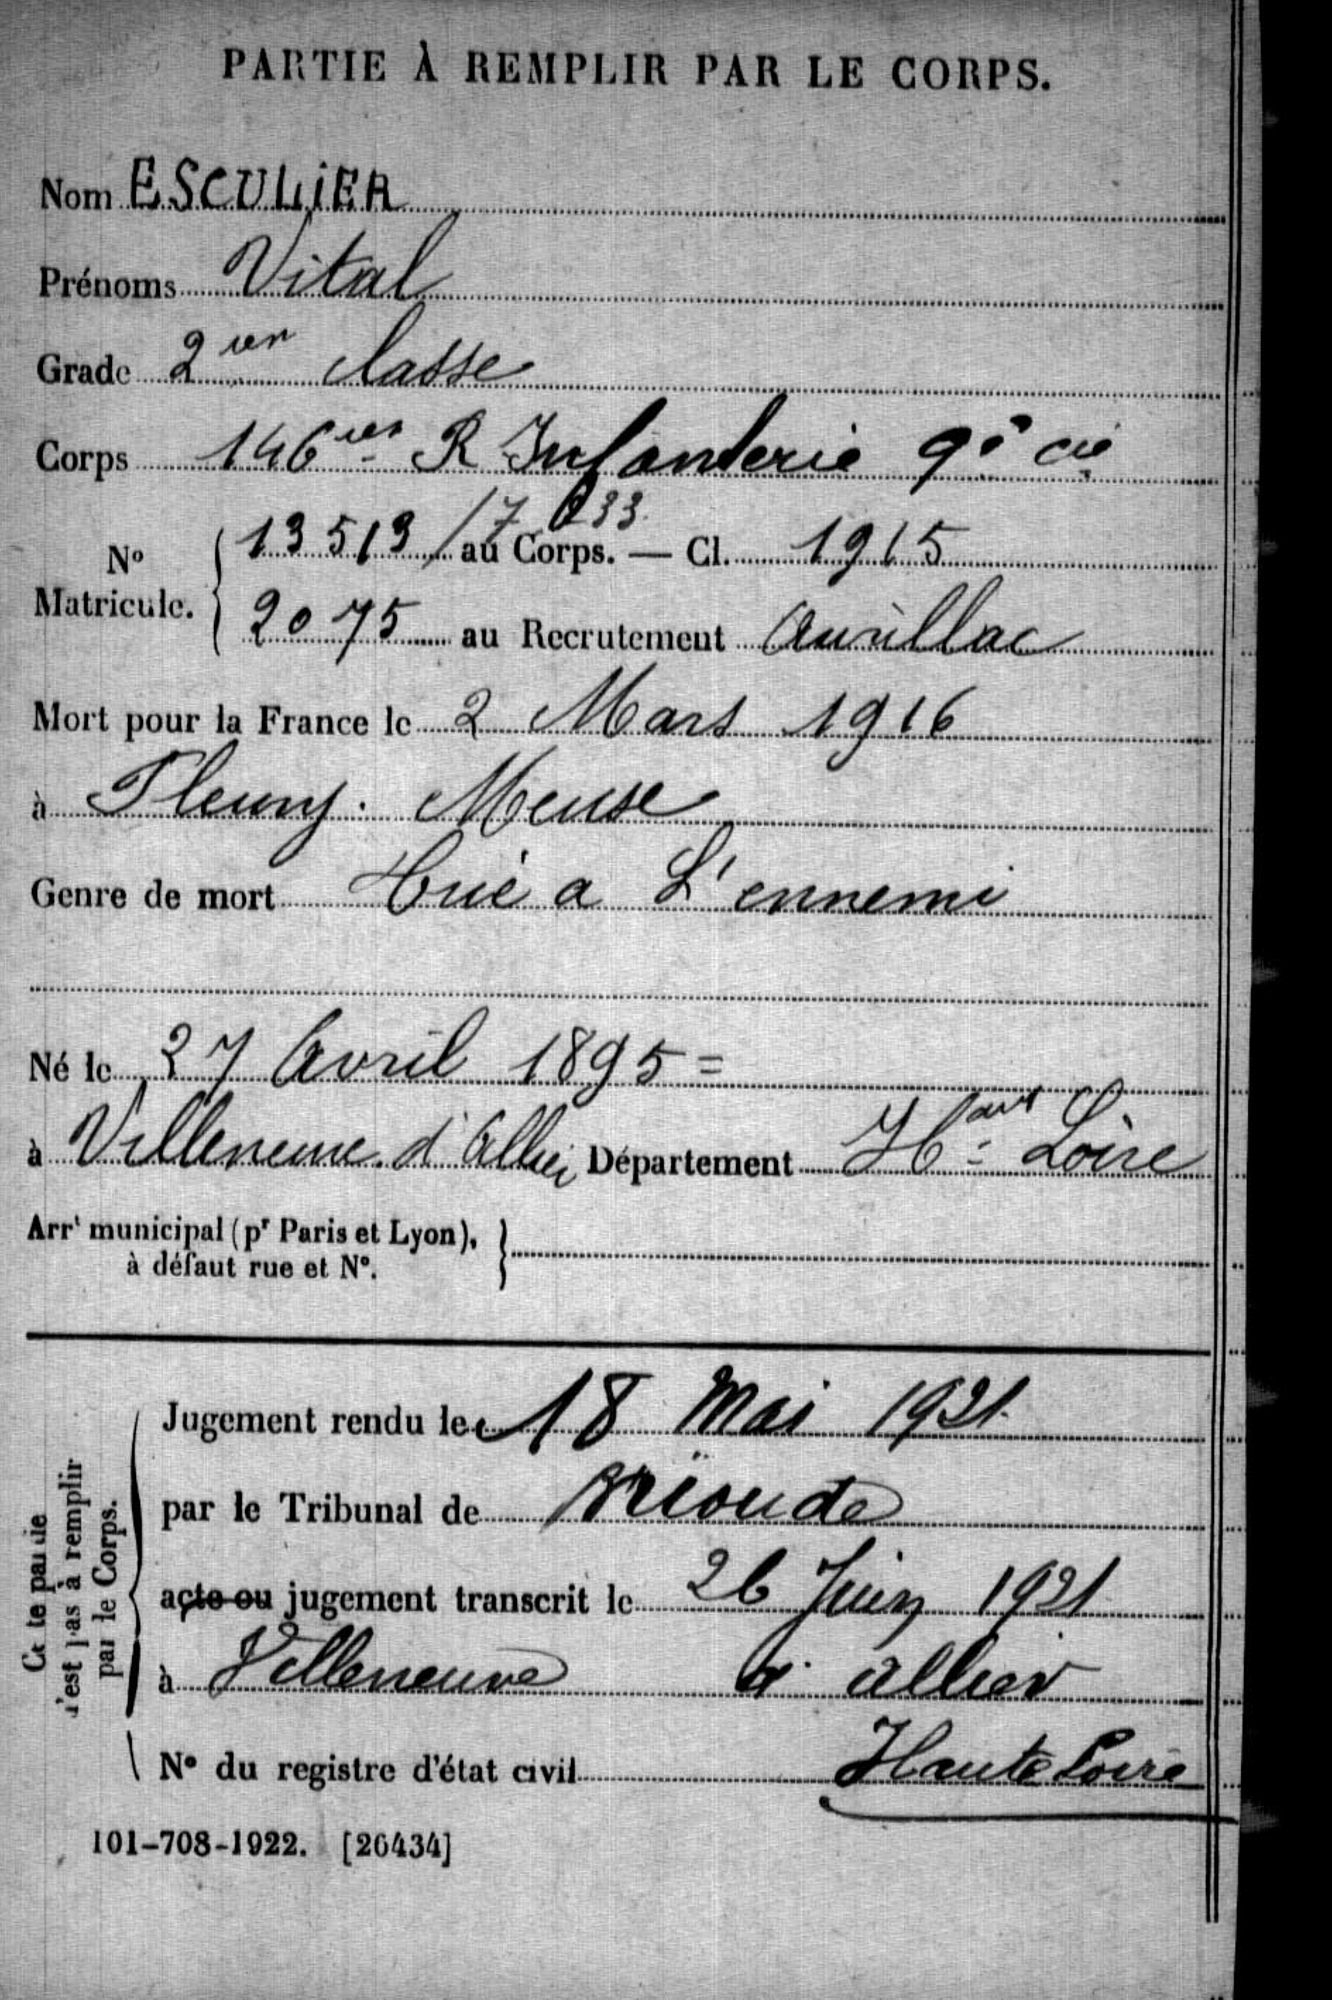 PARTIE À REMPLIR PAR LE CORPS.
Nom ESCULIER
Prénoms Vital
Grade 2 classe
Corps 146 R Infanterie 9e cie
N° Matricule. 13513 / 17 033 au Corps. — Cl. 1915
2075 au Recrutement Aurillac
Mort pour la France le 2 Mars 1916
à Fleury. Meuse
Genre de mort Tué a L'ennemi
Né le 27 Avril 1895 =
à Villeneuve d'Allier Département Haut Loire
Arrt municipal (pr Paris et Lyon),
à défaut rue et N°.
Cette partie
n'est pas à remplir
par le Corps.
Jugement rendu le 18 Mai 1921.
par le Tribunal de Brioude
acte ou jugement transcrit le 26 Juin 1921
à Villeneuve d' allier
N° du registre d'état civil Haute Loire
101-708-1922. [26434]